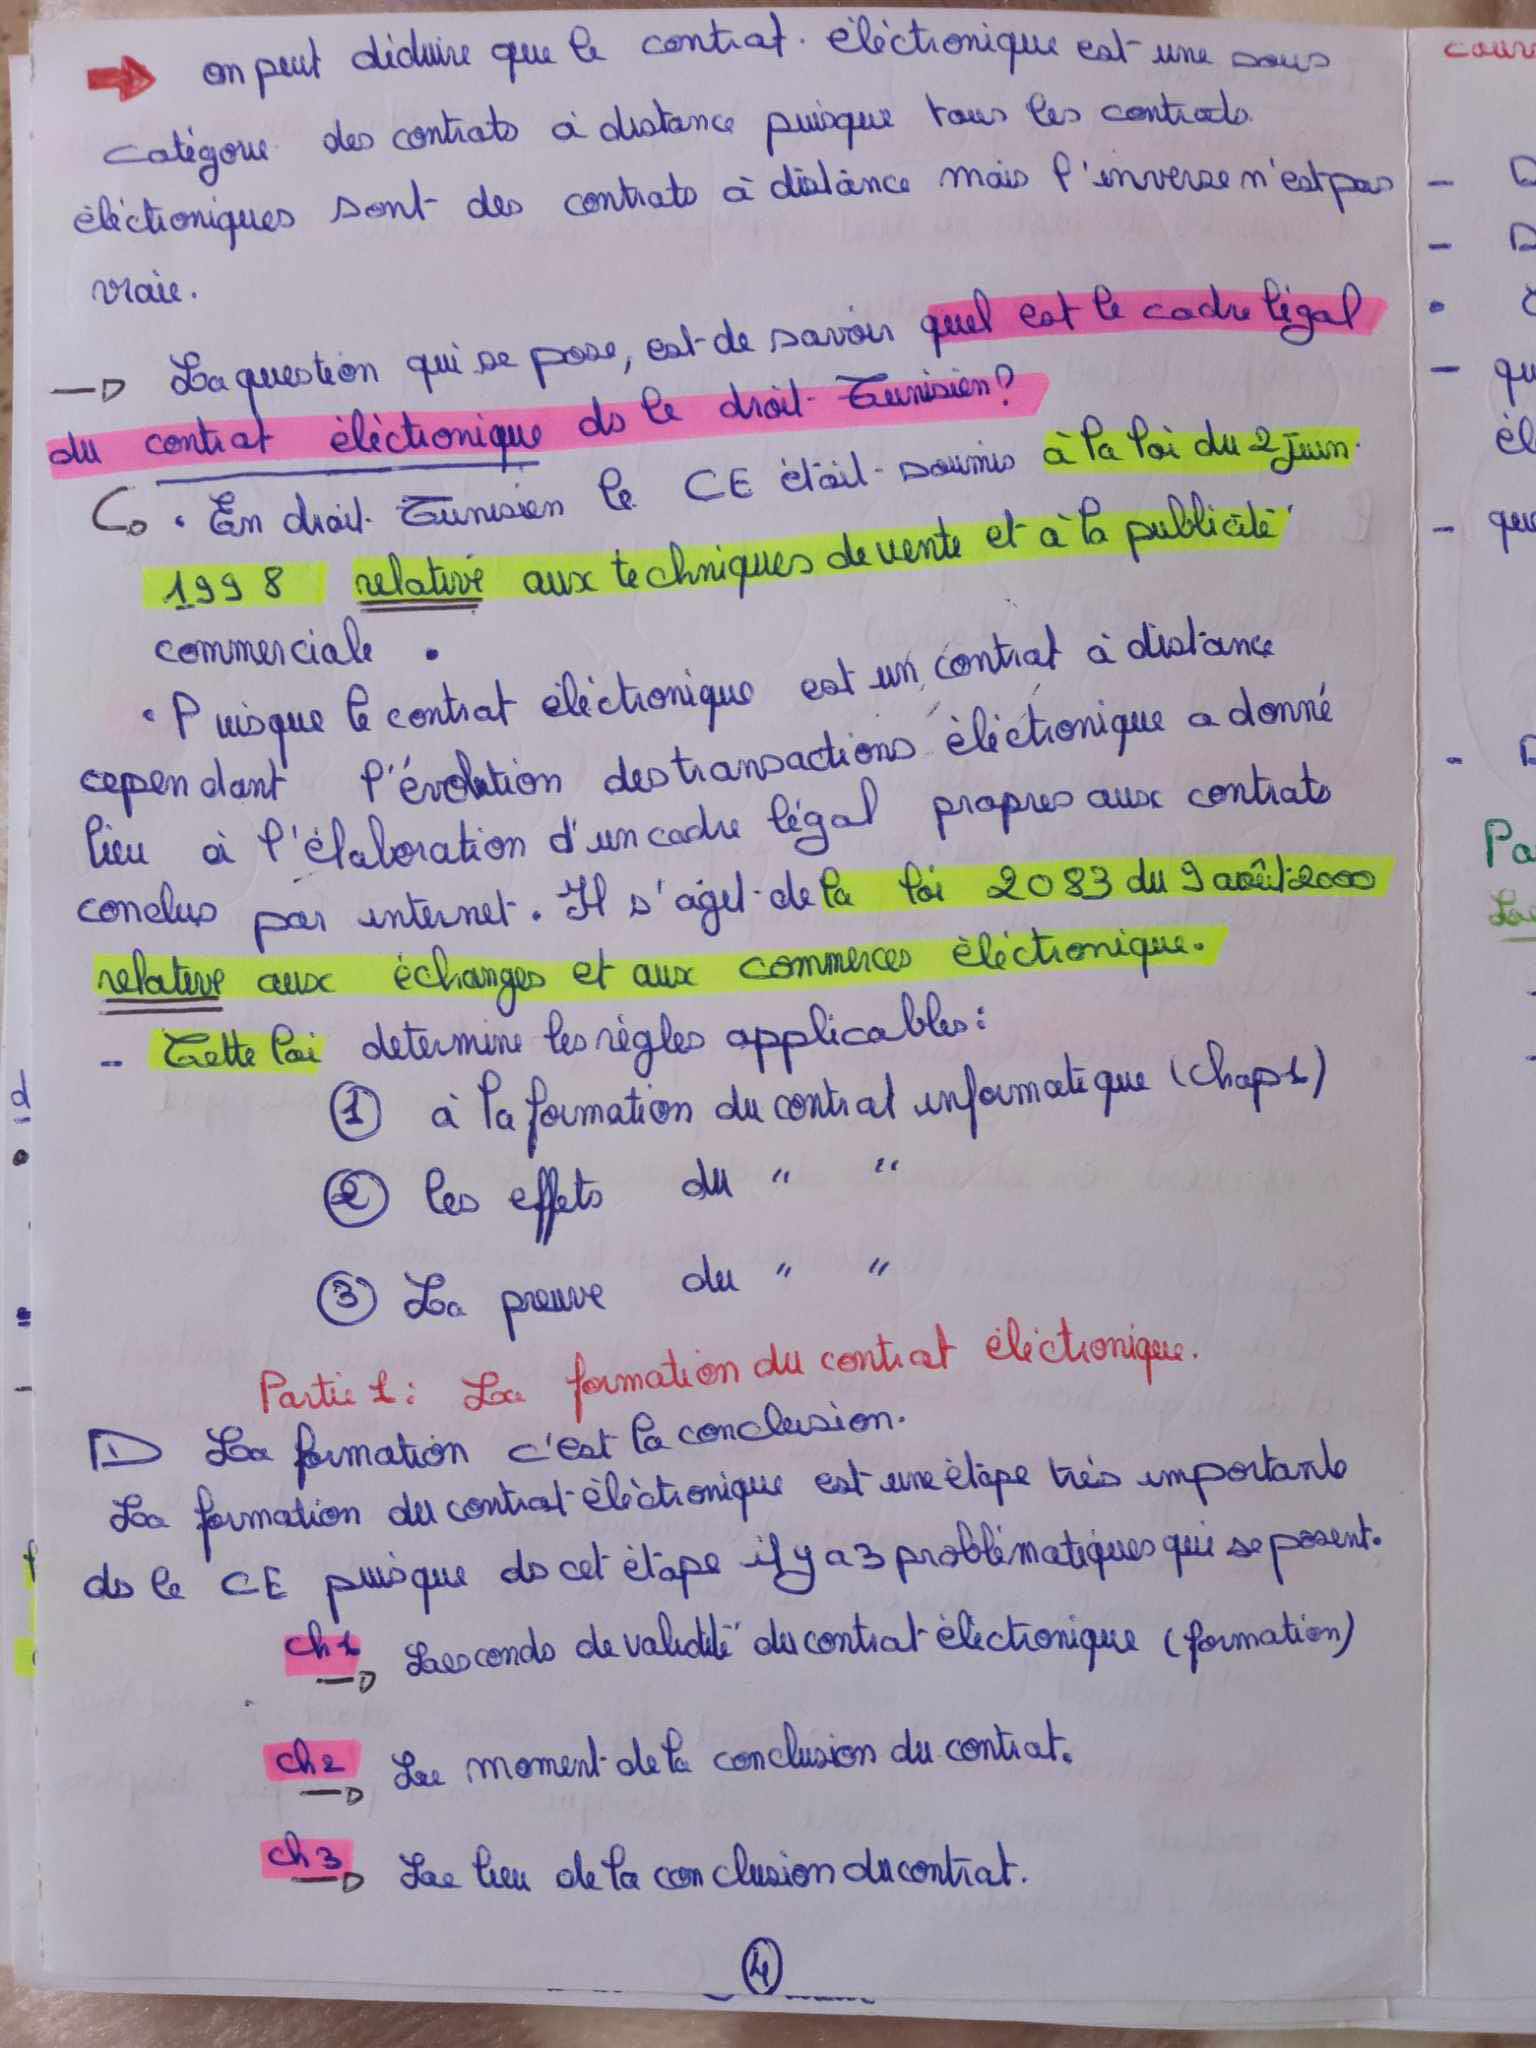 on peut déduire que le contrat. éléctronique est une sous
catégorie des contrats à distance puisque tous les contrats.
éléctroniques sont des contrats à distance mais l'inverse n'est pas
vraie.
La question qui se pose, est de savoir quel est le cadre légal
du contrat éléctronique ds le droit Tunisien?
• En droit Tunisien le CE était soumis à la loi du 2 juin
1998 relative aux techniques de vente et à la publicité
commerciale.
• Puisque le contrat éléctronique est un contrat à distance
cependant l'évolution des transactions éléctronique a donné
lieu à l'élaboration d'un cadre légal propres aux contrats
conclus par internet. Il s'agit de la loi 2083 du 9 août 2000
relative aux échanges et aux commerces éléctronique.
- Cette loi determine les règles applicables:
① à la formation du contrat informatique (chap1)
② les effets du " "
③ La preuve du " "
Partie 1: La formation du contrat éléctronique.
La formation c'est la conclusion.
La formation du contrat éléctronique est une étape très importante
ds le CE puisque ds cet étape il y a 3 problématiques qui se posent.
ch1 Les conds de validité du contrat éléctronique (formation)
ch2 Le moment de la conclusion du contrat.
ch3 Le lieu de la conclusion du contrat.
④